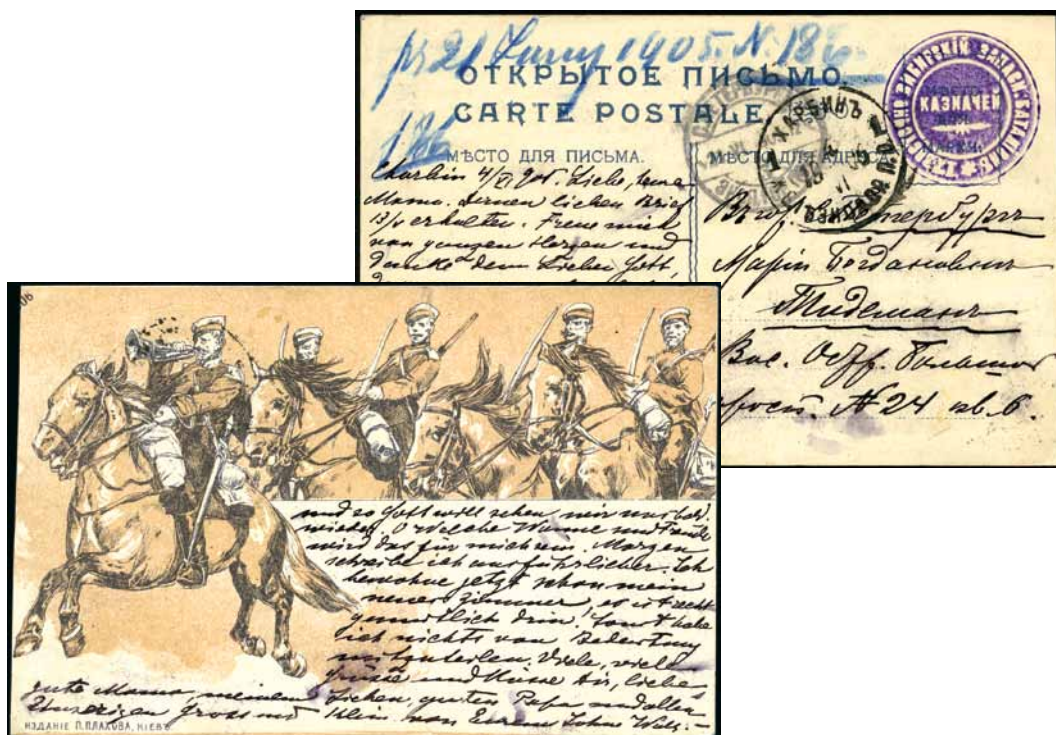 pr 21 Juny 1905. N. 186
ОТКРЫТОЕ ПИСЬМО.
CARTE POSTALE.
186
МѢСТО ДЛЯ ПИСЬМА.
МѢСТО ДЛЯ АДРЕСА
КАЗНАЧЕЙ
ХАРБИНЪ
Charbin 4/VI 905. Liebe, teure
Mama. Deinen lieben Brief
13/V erhalten. Freue mich
von ganzem Herzen und
danke dem Lieben Gott,
Въ гор. С. Петербургъ
Маріи Богдановнѣ
Тидеманъ
Вас. Остр. Большой
просп. № 24 кв. 6.
und so Gott will sehen wir uns bald
wieder. O welche Wonne und Freude
wird das für mich sein. Morgen
schreibe ich ausführlicher. Ich
bewohne jetzt schon mein
neues Zimmer, es ist recht
gemütlich drin. Sonst habe
ich nichts von Bedeutung
mitzuteilen. Viele, viele
Grüsse und Küsse Dir, liebe
gute Mama, meinem Lieben, guten Papa und allen
Unserigen gross und klein von Eurem Sohne
ИЗДАНІЕ П. ПЛАХОВА, КІЕВЪ